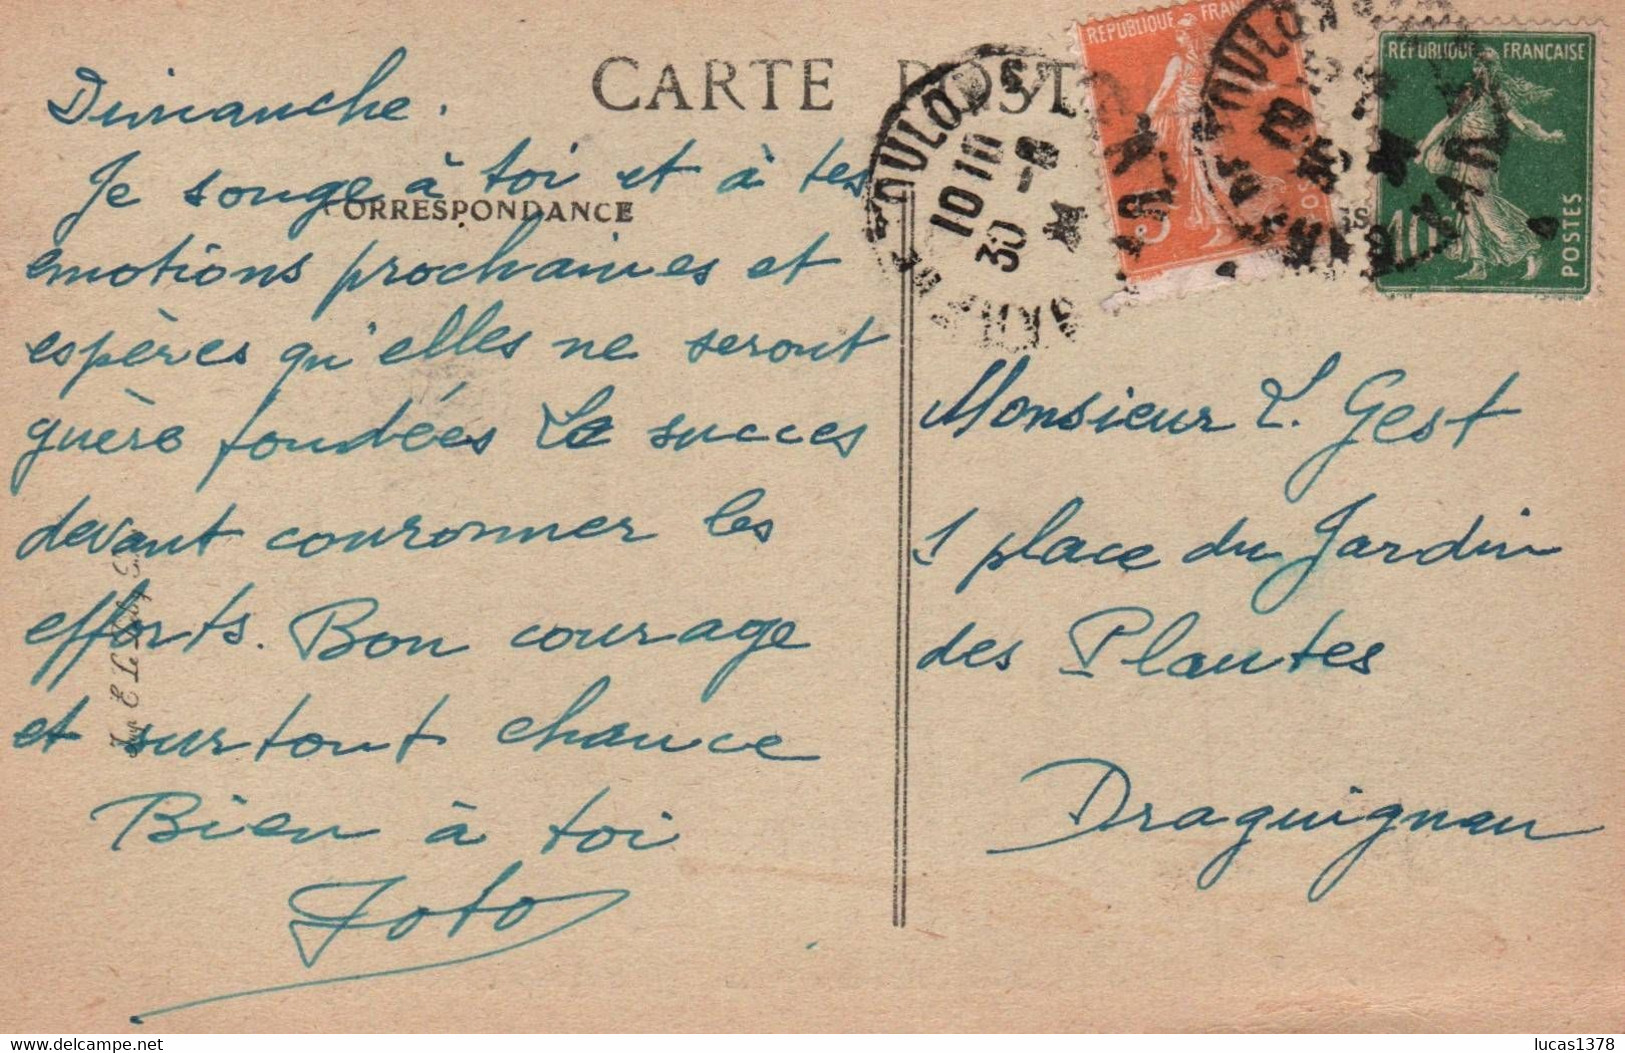 CARTE POST
CORRESPONDANCE
Dimanche.
Je songe à toi et à tes
emotions prochaines et
espères qu'elles ne seront
guère fondées Le succes
devant couronner les
efforts. Bon courage
et surtout chance
Bien à toi
Toto
TOULON S
10 10
30
VAR
REPUBLIQUE FRAN
5
REPUBLIQUE FRANÇAISE
10
POSTES
Monsieur L. Gest
1 place du Jardin
des Plantes
Draguignan
lucas1378